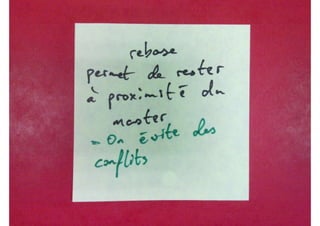 rebase
permet de rester
à proximité du
master
= On évite des
conflits